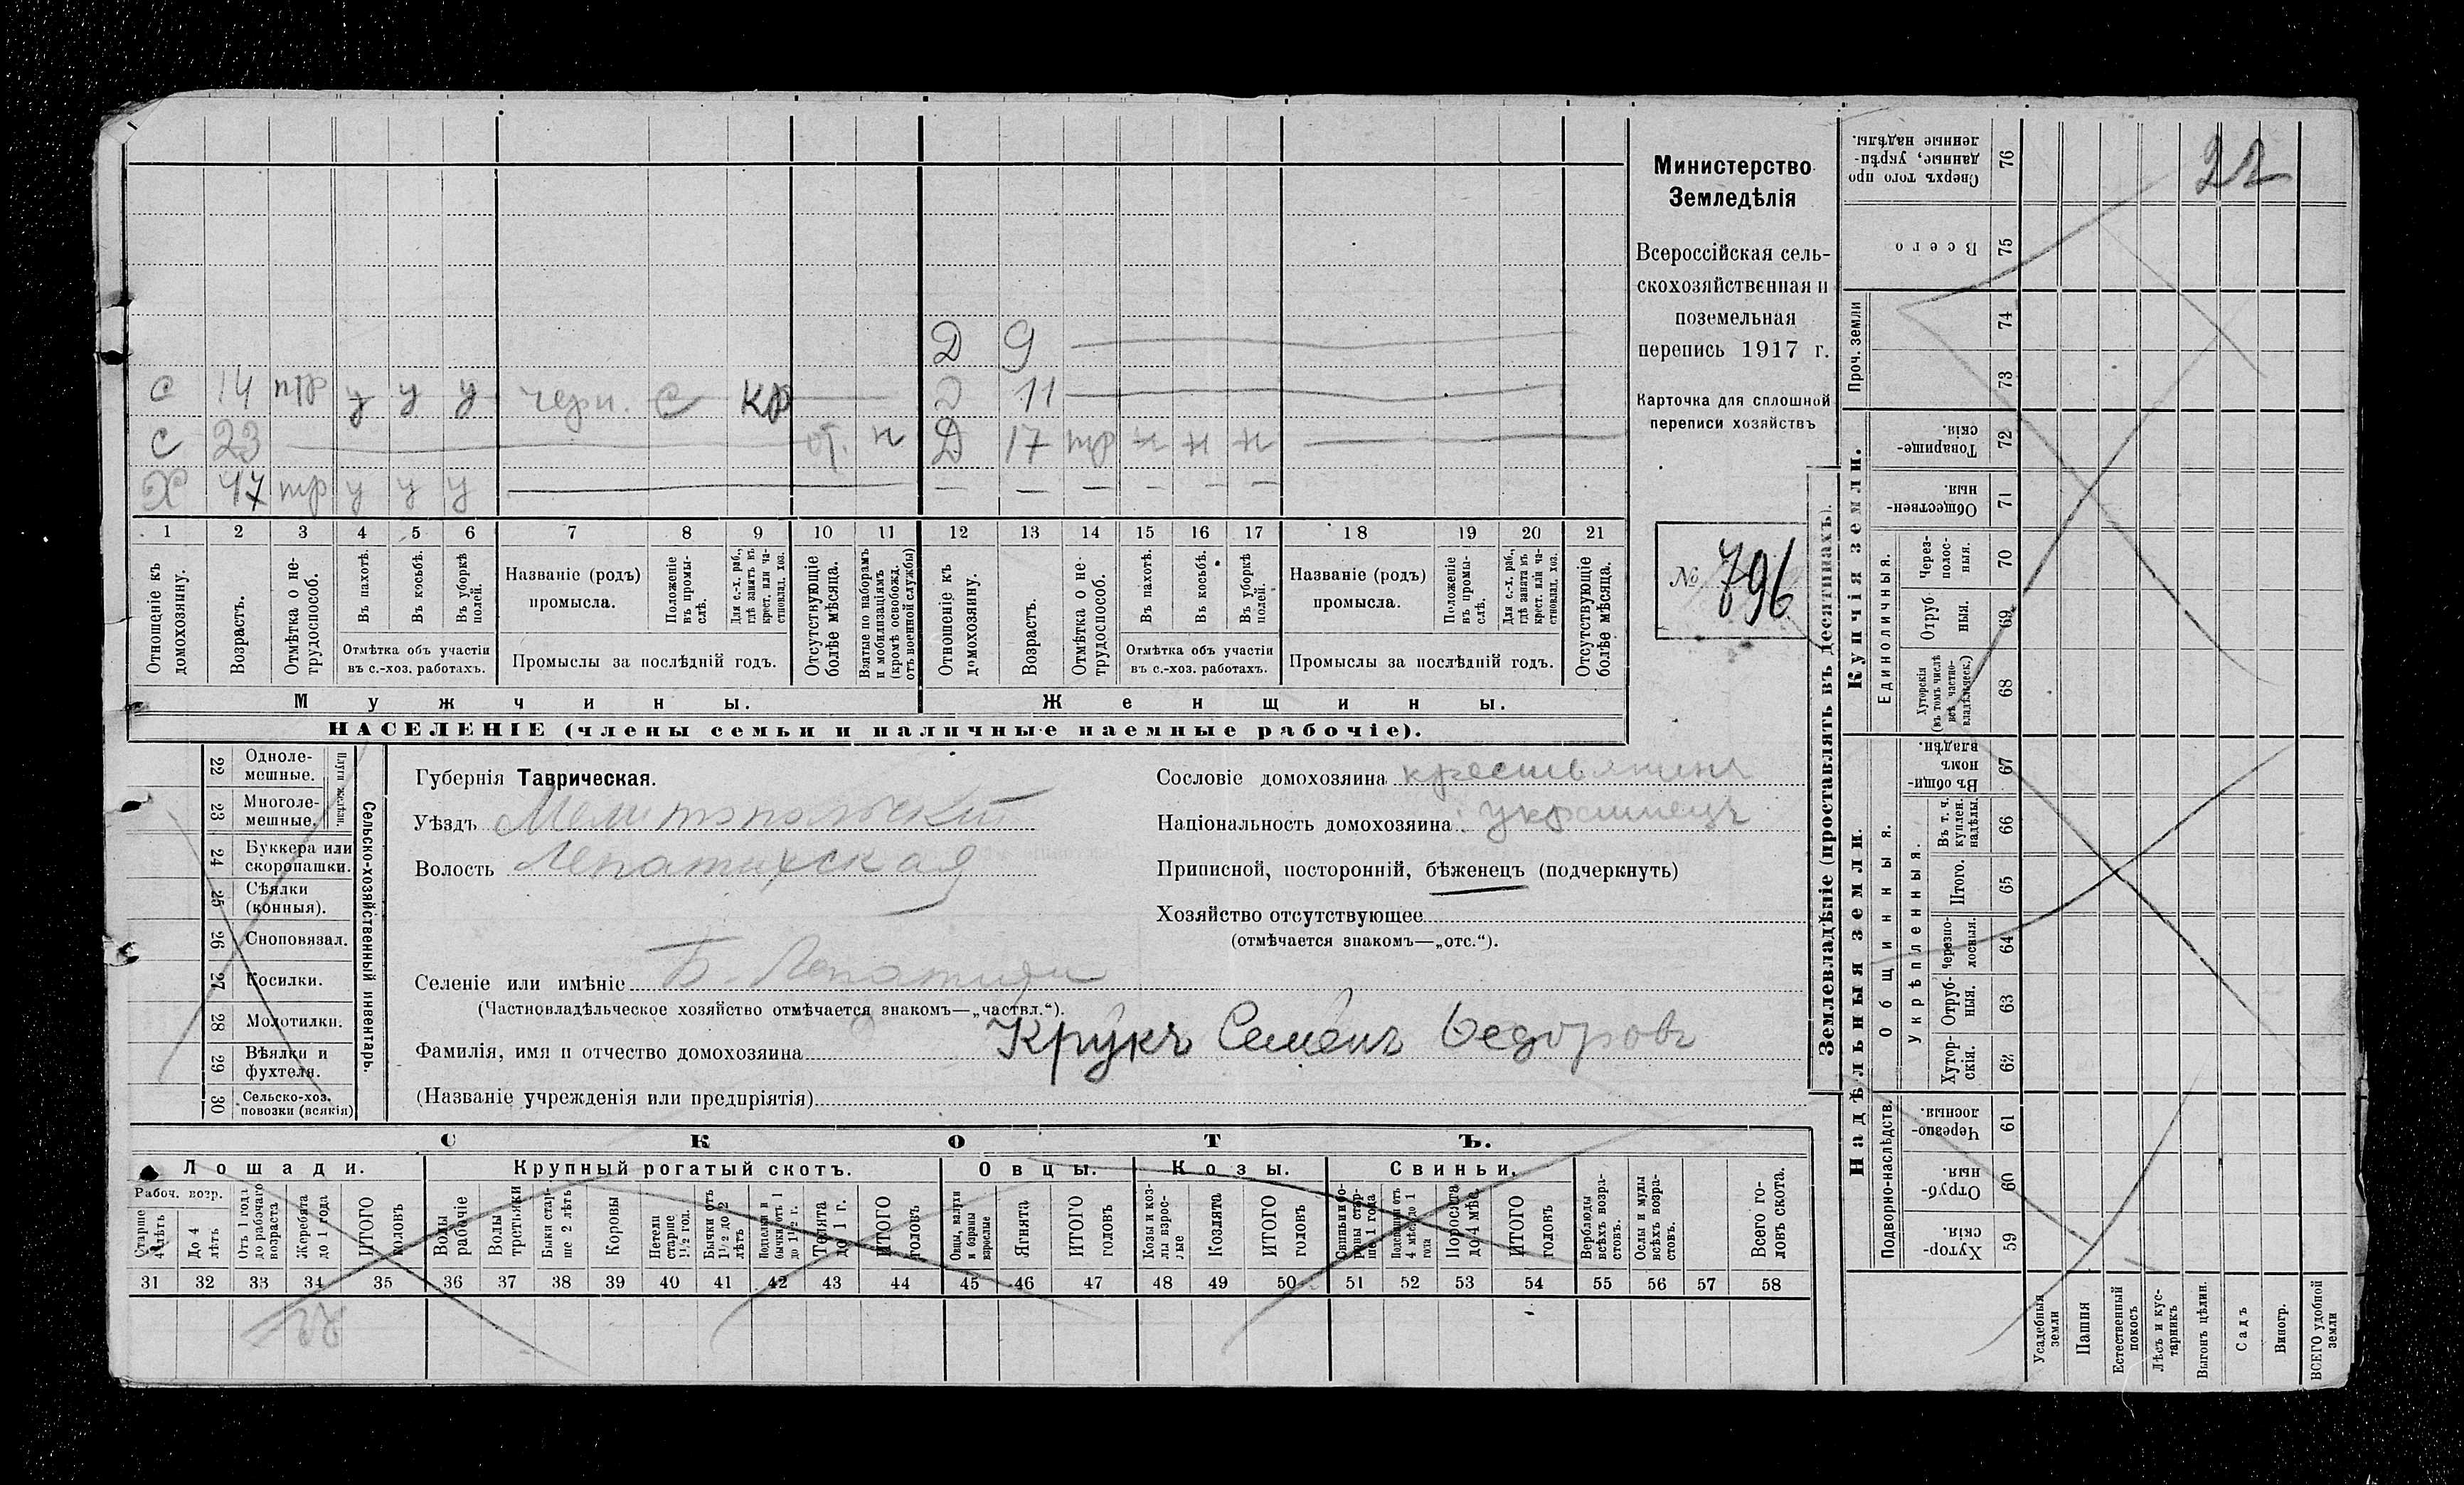 Д 9
С 14 тр у у у черн. С кр Д 11
С 23 от. н Д 17 тр н н н
Х 47 тр у у у — — — — — —
1 2 3 4 5 6 7 8 9 10 11 12 13 14 15 16 17 18 19 20 21
Отношеніе къ домохозяину.
Возрастъ.
Отмѣтка о нетрудоспособ.
Въ пахотѣ.
Въ косьбѣ.
Въ уборкѣ полей.
Отмѣтка объ участіи
въ с.-хоз. работахъ.
Названіе (родъ)
промысла.
Положеніе въ промыслѣ.
Для с.-х. раб., гдѣ занятъ въ крест. или частновлад. хоз.
Промыслы за послѣдній годъ.
Отсутствующіе болѣе мѣсяца.
Взятые по наборамъ и мобилизаціямъ (кромѣ освобожд. отъ военной службы)
Отношеніе къ домохозяину.
Возрастъ.
Отмѣтка о нетрудоспособ.
Въ пахотѣ.
Въ косьбѣ.
Въ уборкѣ полей.
Отмѣтка объ участіи
въ с.-хоз. работахъ.
Названіе (родъ)
промысла.
Положеніе въ промыслѣ.
Для с.-х. раб., гдѣ занята въ крест. или частновлад. хоз.
Промыслы за послѣдній годъ.
Отсутствующіе болѣе мѣсяца.
Мужчины. Женщины.
НАСЕЛЕНІЕ (члены семьи и наличные наемные рабочіе).
Министерство
Земледѣлія
Всероссійская сель-
скохозяйственная и
поземельная
перепись 1917 г.
Карточка для сплошной
переписи хозяйствъ
№ 796
22 Одноле-
мешные.
23 Многоле-
мешные.
24 Буккера или
скоропашки.
25 Сѣялки
(конныя).
26 Сноповязал.
27 Косилки.
28 Молотилки.
29 Вѣялки и
фухтели.
30 Сельско-хоз.
повозки (всякія)
Сельско-хозяйственный инвентарь.
Губернія Таврическая.
Уѣздъ Мелитопольскій
Волость Лепатихская
Сословіе домохозяина крестьянинъ
Національность домохозяина украинецъ
Приписной, посторонній, бѣженецъ (подчеркнуть)
Хозяйство отсутствующее
(отмѣчается знакомъ—„отс.“).
Селеніе или имѣніе Б. Лепатиха
(Частновладѣльческое хозяйство отмѣчается знакомъ—„частвл.“).
Фамилія, имя и отчество домохозяина Крукъ Семенъ Ѳедоровъ
(Названіе учрежденія или предпріятія)
СКОТЪ.
Лошади. Крупный рогатый скотъ. Овцы. Козы. Свиньи.
Рабоч. возр.
Старше 4 лѣтъ
До 4 лѣтъ
Отъ 1 года до рабочаго возраста
Жеребята до 1 года
ИТОГО головъ
Волы рабочіе
Волы третьяки
Быки старше 2 лѣтъ
Коровы
Нетели старше 1½ год.
Бычки отъ 1½ до 2 лѣтъ
Подтелки и бычки отъ 1 до 1½ г.
Телята до 1 г.
ИТОГО головъ
Овцы, валухи и бараны взрослые
Ягнята
ИТОГО головъ
Козы и козлы взрослые
Козлята
ИТОГО головъ
Свиньи и боровы старше 1 года
Подсвинки отъ 4 мѣс. до 1 года
Поросята до 4 мѣс.
ИТОГО головъ
Верблюды всѣхъ возрастовъ.
Ослы и мулы всѣхъ возрастовъ.
Всего головъ скота.
31 32 33 34 35 36 37 38 39 40 41 42 43 44 45 46 47 48 49 50 51 52 53 54 55 56 57 58
22
Землевладѣніе (проставлять въ десятинахъ).
Купчія земли.
Надѣльныя земли.
Проч. земли
Единоличныя.
Общинныя.
Укрѣпленныя.
Подворно-наслѣдств.
Сверхъ того про
данные, укрѣп-
ленные надѣлы. 76
Всего 75
74
73
Товарище-
скія. 72
Обществен-
ныя. 71
Через-
полос-
ныя. 70
Отруб
ныя. 69
Хуторскія
(въ томъ числѣ
всѣ частно-
владѣльческ.) 68
Въ общи-
номъ
владѣн. 67
Въ т. ч.
куплен.
надѣлы. 66
Итого. 65
Черезпо-
лосныя. 64
Отруб-
ныя. 63
Хутор-
скія. 62
Черезпо-
лосныя. 61
Отруб-
ныя. 60
Хутор-
скія. 59
Усадебныя земли
Пашня
Естественный покосъ
Лѣсъ и кустарникъ
Выгонъ цѣлин.
Садъ
Виногр.
ВСЕГО удобной земли
22